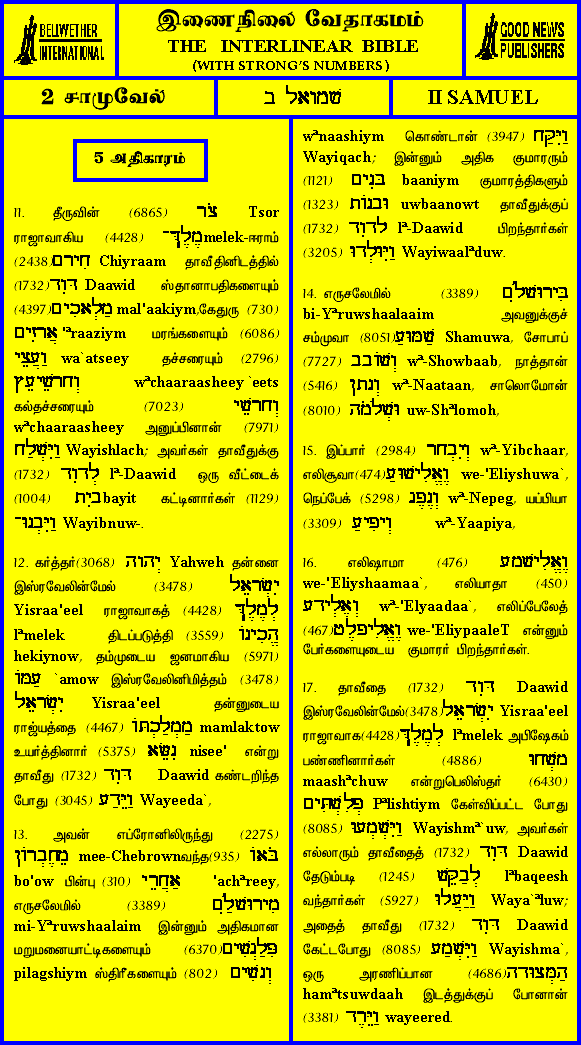 BELLWETHER
INTERNATIONAL
இணைநிலை வேதாகமம்
THE INTERLINEAR BIBLE
(WITH STRONG'S NUMBERS)
GOOD NEWS
PUBLISHERS
2 சாமுவேல்
שמואל ב
II SAMUEL
5 அதிகாரம்
11. தீருவின் (6865) צֹר Tsor
ராஜாவாகிய (4428) מֶלֶךְ־ melek-ஈராம்
(2438) חִירָם Chiyraam தாவீதினிடத்தில்
(1732) דָּוִד Daawid ஸ்தானாபதிகளையும்
(4397) מַלְאָכִים mal'aakiym,கேதுரு (730)
אֲרָזִים 'ªraaziym மரங்களையும் (6086)
וַעֲצֵי wa`atseey தச்சரையும் (2796)
וְחָרָשֵׁי עֵץ wªchaaraasheey `eets
கல்தச்சரையும் (7023) וְחָרָשֵׁי
wªchaaraasheey அனுப்பினான் (7971)
וַיִּשְׁלַח Wayishlach; அவர்கள் தாவீதுக்கு
(1732) לְדָוִד lª-Daawid ஒரு வீட்டைக்
(1004) בַיִת bayit கட்டினார்கள் (1129)
וַיִּבְנוּ־ Wayibnuw-.
12. கர்த்தர்(3068) יְהוָה Yahweh தன்னை
இஸ்ரவேலின்மேல் (3478) יִשְׂרָאֵל
Yisraa'eel ராஜாவாகத் (4428) לְמֶלֶךְ
lªmelek திடப்படுத்தி (3559) הֱכִינוֹ
hekiynow, தம்முடைய ஜனமாகிய (5971)
עַמּוֹ `amow இஸ்ரவேலினிமித்தம் (3478)
יִשְׂרָאֵל Yisraa'eel தன்னுடைய
ராஜ்யத்தை (4467) מַמְלַכְתּוֹ mamlaktow
உயர்த்தினார் (5375) נִשֵּׂא nisee' என்று
தாவீது (1732) דָּוִד Daawid கண்டறிந்த
போது (3045) וַיֵּדַע Wayeeda`,
13. அவன் எப்ரோனிலிருந்து (2275)
מֵחֶבְרוֹן mee-Chebrownவந்த(935) בֹּאוֹ
bo'ow பின்பு (310) אַחֲרֵי 'achªreey,
எருசலேமில் (3389) מִירוּשָׁלַם
mi-Yªruwshaalaim இன்னும் அதிகமான
மறுமனையாட்டிகளையும் (6370) פִּלַגְשִׁים
pilagshiym ஸ்திரீகளையும் (802) וְנָשִׁים
wªnaashiym கொண்டான் (3947) וַיִּקַּח
Wayiqach; இன்னும் அதிக குமாரரும்
(1121) בָּנִים baaniym குமாரத்திகளும்
(1323) וּבָנוֹת uwbaanowt தாவீதுக்குப்
(1732) לְדָוִד lª-Daawid பிறந்தார்கள்
(3205) וַיִּוָּלְדוּ Wayiwaalªduw.
14. எருசலேமில் (3389) בִּירוּשָׁלִָם
bi-Yªruwshaalaaim அவனுக்குச்
சம்முவா (8051) שַׁמּוּעַ Shamuwa, சோபாப்
(7727) וְשׁוֹבָב wª-Showbaab, நாத்தான்
(5416) וְנָתָן wª-Naataan, சாலொமோன்
(8010) וּשְׁלֹמֹה uw-Shªlomoh,
15. இப்பார் (2984) וְיִבְחָר wª-Yibchaar,
எலிசூவா(474) וֶאֱלִישׁוּעַ we-'Eliyshuwa`,
நெப்பேக் (5298) וְנֶפֶג wª-Nepeg, யப்பியா
(3309) וְיָפִיעַ wª-Yaapiya,
16. எலிஷாமா (476) וֶאֱלִישָׁמָע
we-'Eliyshaamaa`, எலியாதா (450)
וְאֶלְיָדָע wª-'Elyaadaa`, எலிப்பேலேத்
(467) וֶאֱלִיפָלֶט we-'EliypaaleT என்னும்
பேர்களையுடைய குமாரர் பிறந்தார்கள்.
17. தாவீதை (1732) דָּוִד Daawid
இஸ்ரவேலின்மேல்(3478) יִשְׂרָאֵל Yisraa'eel
ராஜாவாக(4428) לְמֶלֶךְ lªmelek அபிஷேகம்
பண்ணினார்கள் (4886) מָשְׁחוּ
maashªchuw என்றுபெலிஸ்தர் (6430)
פְלִשְׁתִּים Pªlishtiym கேள்விப்பட்ட போது
(8085) וַיִּשְׁמְעוּ Wayishmª`uw, அவர்கள்
எல்லாரும் தாவீதைத் (1732) דָּוִד Daawid
தேடும்படி (1245) לְבַקֵּשׁ lªbaqeesh
வந்தார்கள் (5927) וַיַּעֲלוּ Waya`ªluw;
அதைத் தாவீது (1732) דָּוִד Daawid
கேட்டபோது (8085) וַיִּשְׁמַע Wayishma`,
ஒரு அரணிப்பான (4686) הַמְּצוּדָה
hamªtsuwdaah இடத்துக்குப் போனான்
(3381) וַיֵּרֶד wayeered.